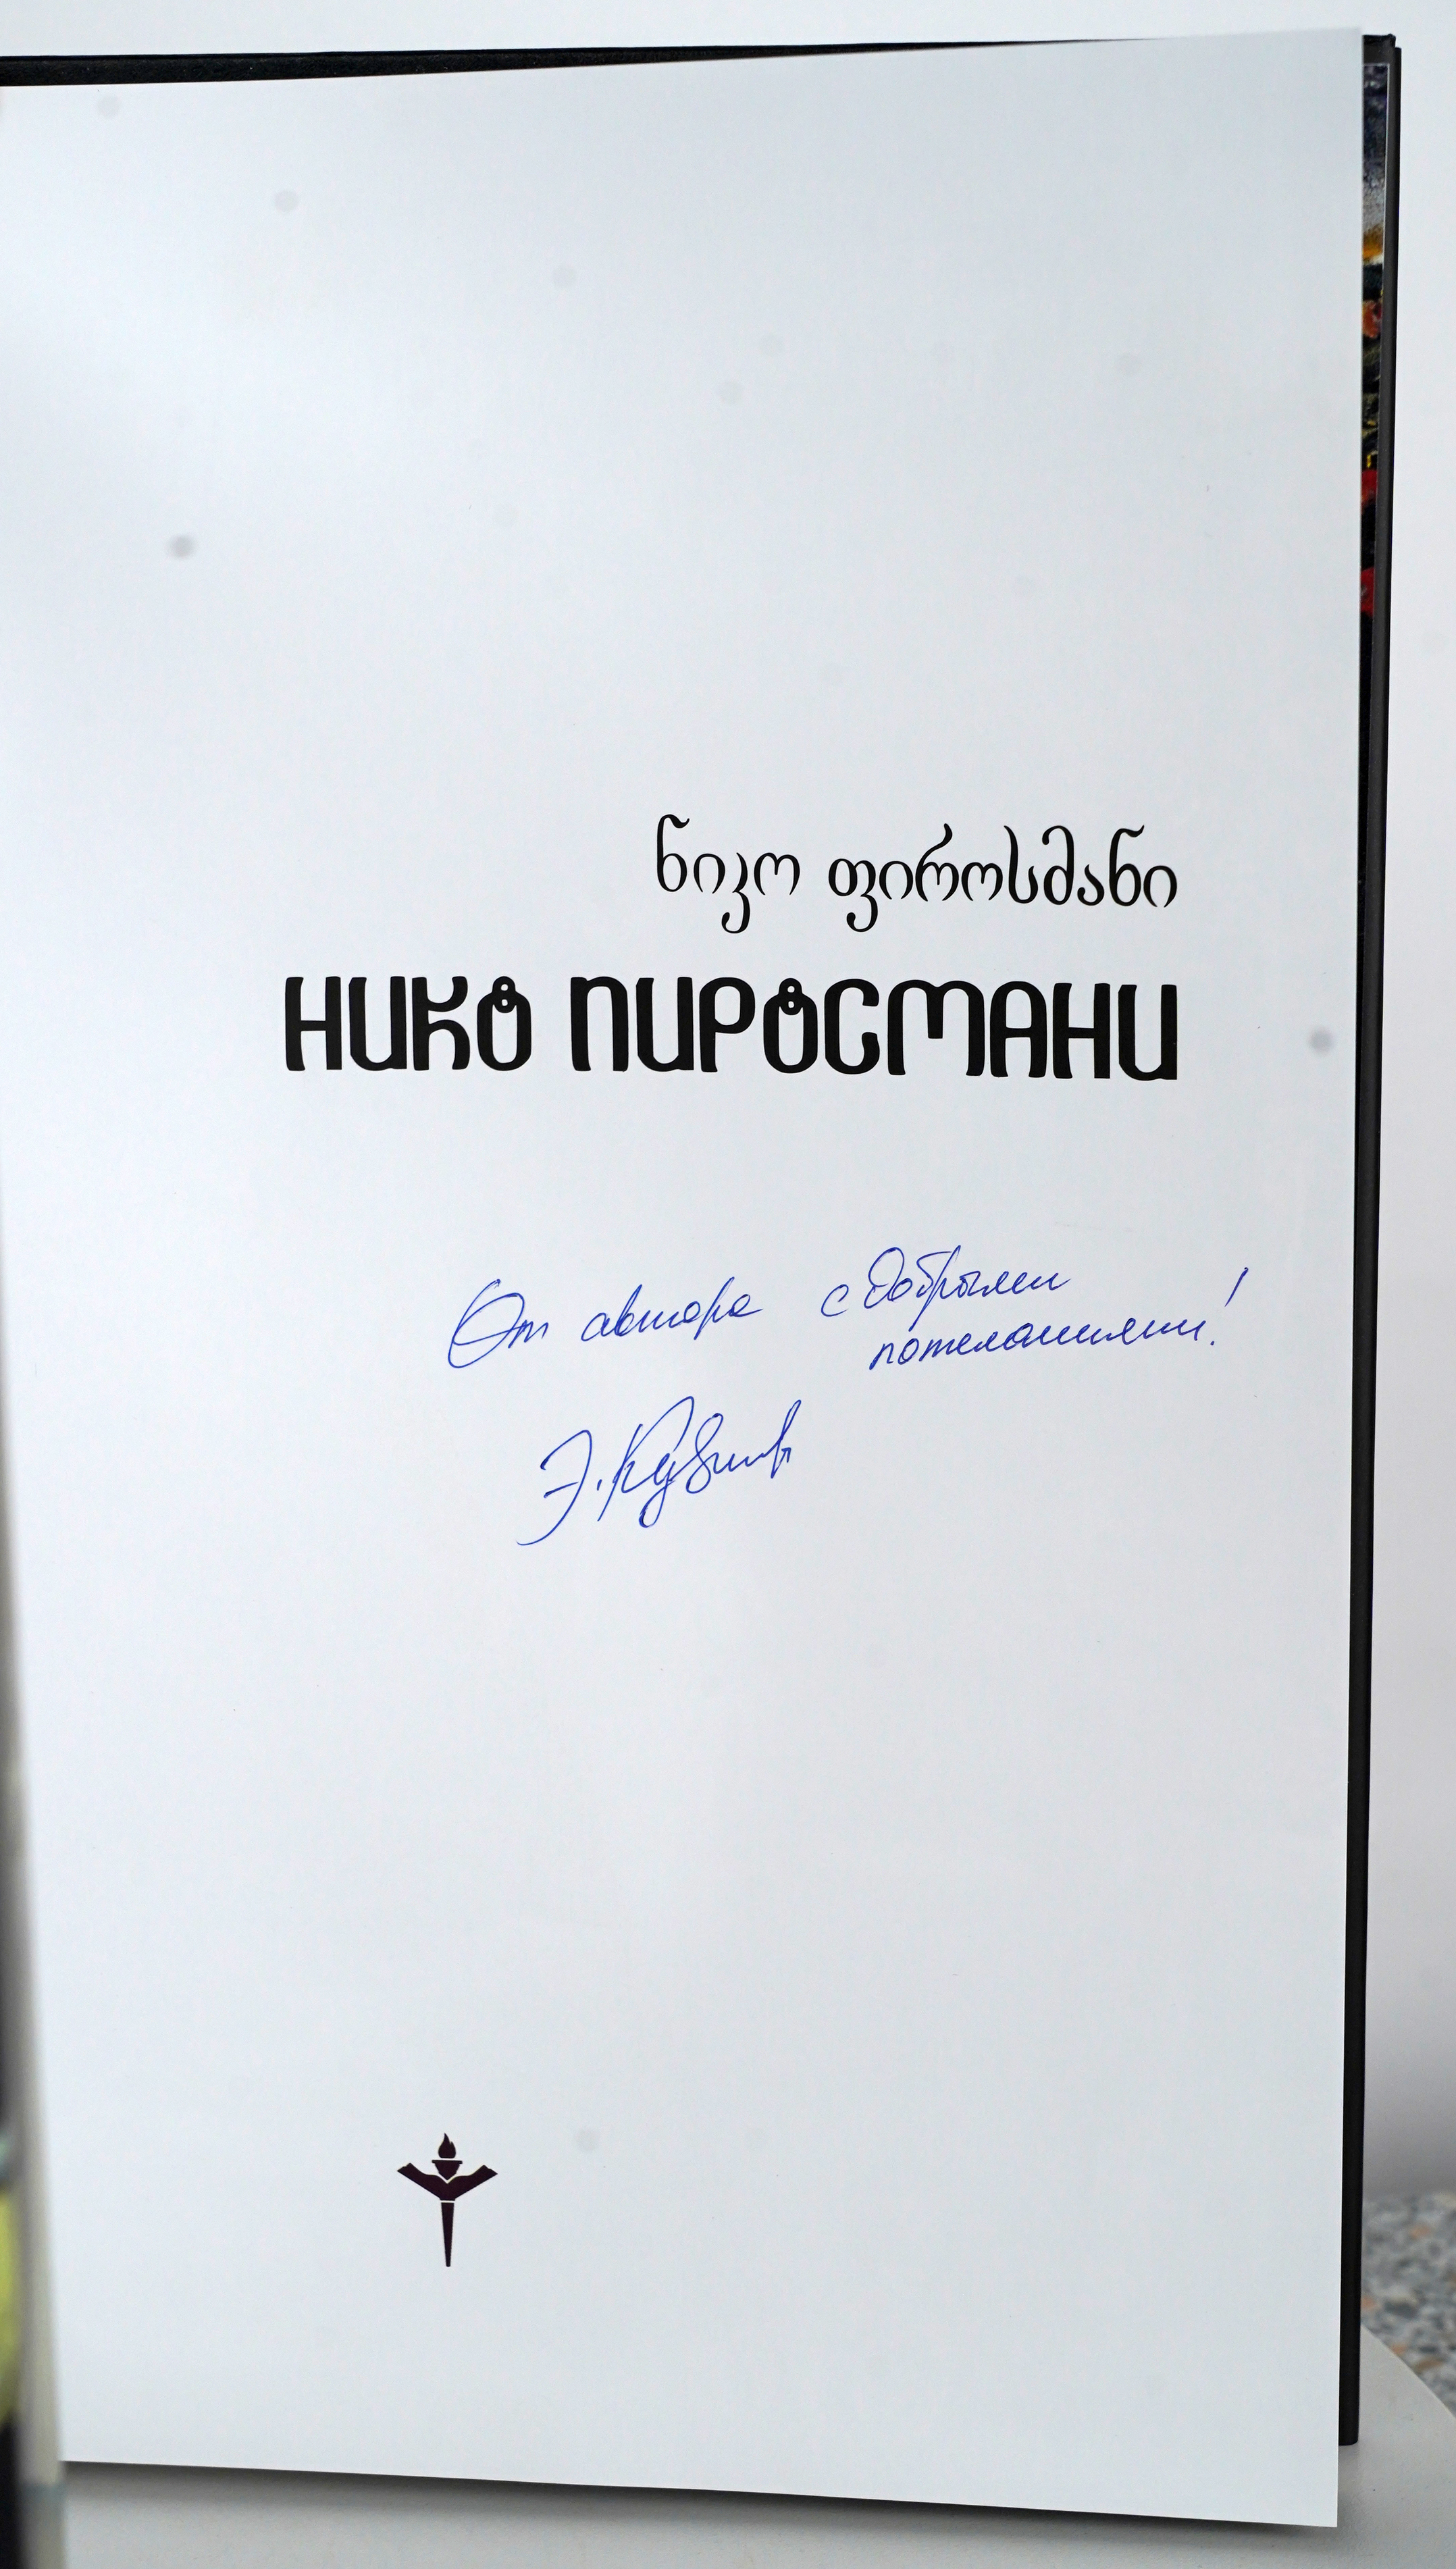 ნიკო ფიროსმანი
НИКО ПИРОСМАНИ
От автора с добрыми
пожеланиями!
Э. Кузнецов